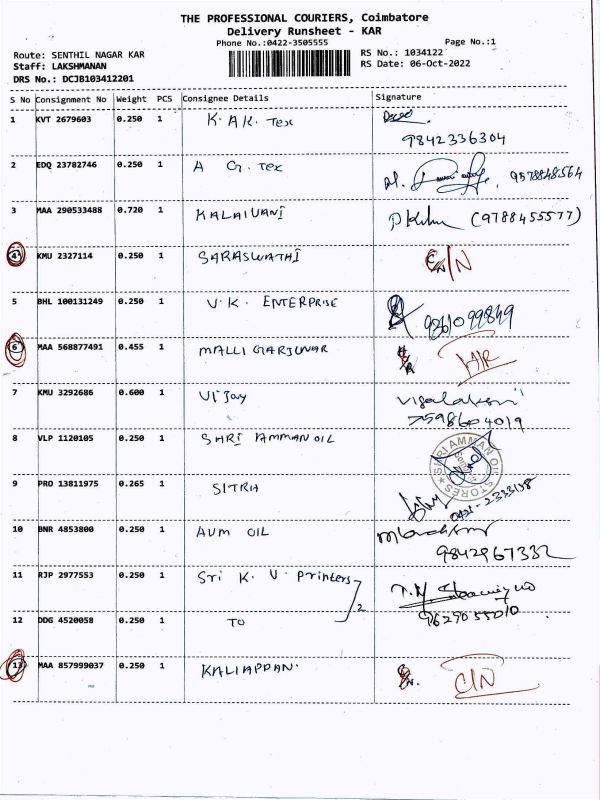 THE PROFESSIONAL COURIERS, Coimbatore
Delivery Runsheet - KAR
Phone No.:0422-3505555
Page No.:1
Route: SENTHIL NAGAR KAR
RS No.: 1034122
Staff: LAKSHMANAN
RS Date: 06-Oct-2022
DRS No.: DCJB103412201
S No Consignment No Weight PCS Consignee Details Signature
1 KVT 2679603 0.250 1 K. AK. Tex
9842336304
2 EDQ 23782746 0.250 1 A G. Tex
9578848564
3 MAA 290533488 0.720 1 KALAIVANI (9788455577)
4 KMU 2327114 0.250 1 SARASWATHI C/N
5 BHL 100131249 0.250 1 V.K. ENTERPRISE
6 MAA 568877491 0.455 1 MALLIGARJUNAR
7 KMU 3292686 0.600 1 Vijay
7598604019
8 VLP 1120105 0.250 1 SHRI AMMAN OIL
SRI AMMAN OIL STORES
9 PRO 13811975 0.265 1 SITRA
10 BNR 4853800 0.250 1 AUM OIL
9842967332
11 RJP 2977553 0.250 1 Sri K. V. Printers
2
12 DDG 4520058 0.250 1 TO 9629055010
13 MAA 857999037 0.250 1 KALIAPPAN. C/N